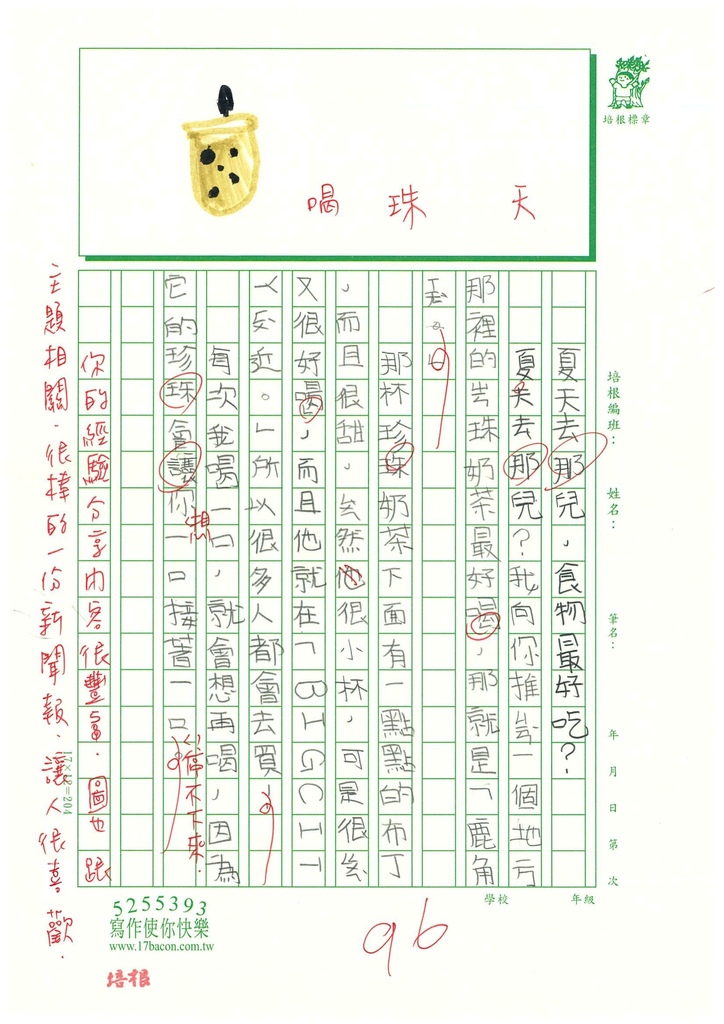 培根標章
喝 珠 天
培根編班： 姓名： 筆名： 年 月 日 第 次
夏天去那兒，食物最好吃？
夏天去那兒？我向你推 一個地方
那裡的 珠奶茶最好喝，那就是「鹿角
那杯珍珠奶茶下面有一點點的布丁
，而且很甜， 然他很小杯，可是很
又很好喝，而且他就在「BHGCIT
近。」所以很多人都會去買
每次我喝一口，就會想再喝，因為
它的珍珠會讓你想一口接著一口停不下來.
你的經驗分享內容很豐富.圖也跟
主題相關.很棒的一份新聞報.讓人很喜歡.
17×12=204
學校 年級
5255393
寫作使你快樂
www.17bacon.com.tw
培根
96